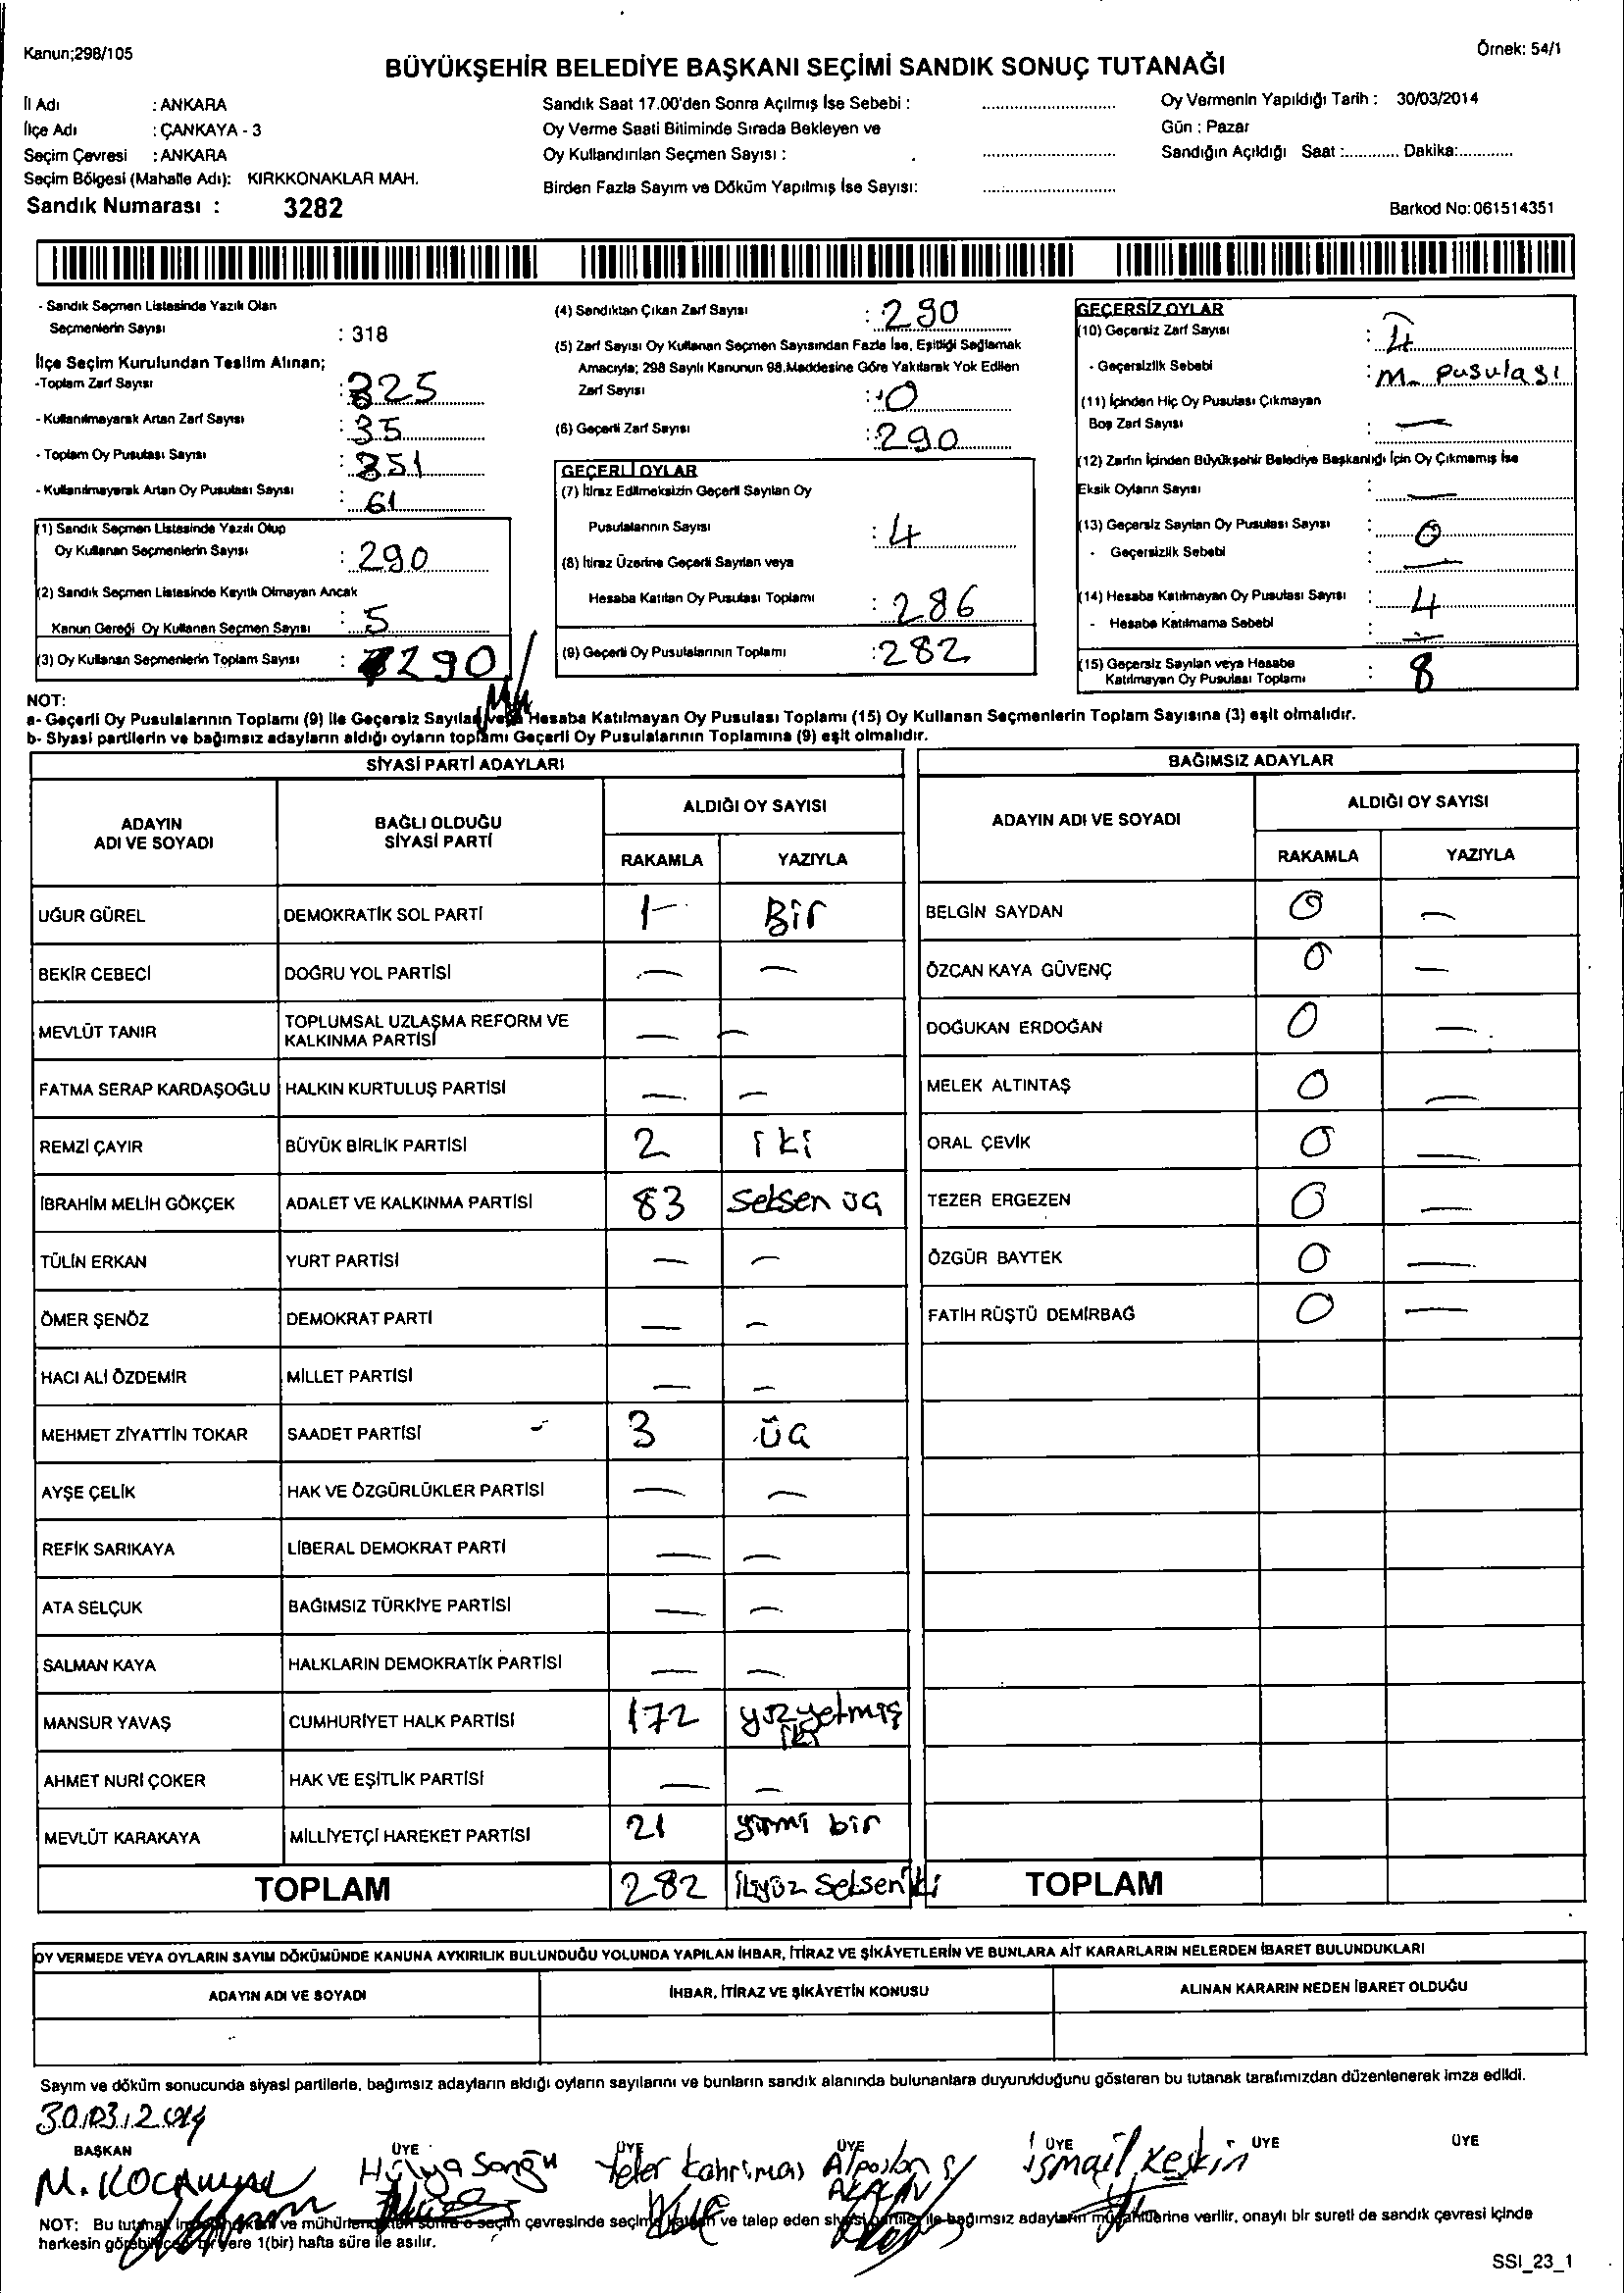 Kanun;298/105
Örnek: 54/1
BÜYÜKŞEHİR BELEDİYE BAŞKANI SEÇİMİ SANDIK SONUÇ TUTANAĞI
İl Adı : ANKARA
İlçe Adı : ÇANKAYA - 3
Seçim Çevresi : ANKARA
Seçim Bölgesi (Mahalle Adı): KIRKKONAKLAR MAH.
Sandık Numarası : 3282
Sandık Saat 17.00'den Sonra Açılmış İse Sebebi :
Oy Verme Saati Bitiminde Sırada Bekleyen ve
Oy Kullandırılan Seçmen Sayısı :
Birden Fazla Sayım ve Döküm Yapılmış İse Sayısı:
Oy Vermenin Yapıldığı Tarih : 30/03/2014
Gün : Pazar
Sandığın Açıldığı Saat :............ Dakika:............
Barkod No:061514351
- Sandık Seçmen Listesinde Yazılı Olan
Seçmenlerin Sayısı : 318
İlçe Seçim Kurulundan Teslim Alınan;
-Toplam Zarf Sayısı : 325
- Kullanılmayarak Artan Zarf Sayısı : 35
- Toplam Oy Pusulası Sayısı : 351
- Kullanılmayarak Artan Oy Pusulası Sayısı : 61
(1) Sandık Seçmen Listesinde Yazılı Olup
Oy Kullanan Seçmenlerin Sayısı : 290
(2) Sandık Seçmen Listesinde Kayıtlı Olmayan Ancak
Kanun Gereği Oy Kullanan Seçmen Sayısı : 5
(3) Oy Kullanan Seçmenlerin Toplam Sayısı : 290
(4) Sandıktan Çıkan Zarf Sayısı : 290
(5) Zarf Sayısı Oy Kullanan Seçmen Sayısından Fazla İse, Eşitliği Sağlamak
Amacıyla; 298 Sayılı Kanunun 98.Maddesine Göre Yakılarak Yok Edilen
Zarf Sayısı : 0
(6) Geçerli Zarf Sayısı : 290
GEÇERLİ OYLAR
(7) İtiraz Edilmeksizin Geçerli Sayılan Oy
Pusulalarının Sayısı : 4
(8) İtiraz Üzerine Geçerli Sayılan veya
Hesaba Katılan Oy Pusulası Toplamı : 286
(9) Geçerli Oy Pusulalarının Toplamı : 282
GEÇERSİZ OYLAR
(10) Geçersiz Zarf Sayısı : 4
- Geçersizlik Sebebi : M. Pusulası
(11) İçinden Hiç Oy Pusulası Çıkmayan
Boş Zarf Sayısı : —
(12) Zarfın İçinden Büyükşehir Belediye Başkanlığı İçin Oy Çıkmamış İse
Eksik Oyların Sayısı : —
(13) Geçersiz Sayılan Oy Pusulası Sayısı : 0
- Geçersizlik Sebebi : —
(14) Hesaba Katılmayan Oy Pusulası Sayısı : 4
- Hesaba Katılmama Sebebi : —
(15) Geçersiz Sayılan veya Hesaba
Katılmayan Oy Pusulası Toplamı : 8
NOT:
a- Geçerli Oy Pusulalarının Toplamı (9) ile Geçersiz Sayılan veya Hesaba Katılmayan Oy Pusulası Toplamı (15) Oy Kullanan Seçmenlerin Toplam Sayısına (3) eşit olmalıdır.
b- Siyasi partilerin ve bağımsız adayların aldığı oyların toplamı Geçerli Oy Pusulalarının Toplamına (9) eşit olmalıdır.
SİYASİ PARTİ ADAYLARI
ADAYIN ADI VE SOYADI
BAĞLI OLDUĞU SİYASİ PARTİ
ALDIĞI OY SAYISI
RAKAMLA YAZIYLA
UĞUR GÜREL DEMOKRATİK SOL PARTİ 1 Bir
BEKİR CEBECİ DOĞRU YOL PARTİSİ — —
MEVLÜT TANIR TOPLUMSAL UZLAŞMA REFORM VE KALKINMA PARTİSİ — —
FATMA SERAP KARDAŞOĞLU HALKIN KURTULUŞ PARTİSİ — —
REMZİ ÇAYIR BÜYÜK BİRLİK PARTİSİ 2 iki
İBRAHİM MELİH GÖKÇEK ADALET VE KALKINMA PARTİSİ 83 Seksen üç
TÜLİN ERKAN YURT PARTİSİ — —
ÖMER ŞENÖZ DEMOKRAT PARTİ — —
HACI ALİ ÖZDEMİR MİLLET PARTİSİ — —
MEHMET ZİYATTİN TOKAR SAADET PARTİSİ 3 üç
AYŞE ÇELİK HAK VE ÖZGÜRLÜKLER PARTİSİ — —
REFİK SARIKAYA LİBERAL DEMOKRAT PARTİ — —
ATA SELÇUK BAĞIMSIZ TÜRKİYE PARTİSİ — —
SALMAN KAYA HALKLARIN DEMOKRATİK PARTİSİ — —
MANSUR YAVAŞ CUMHURİYET HALK PARTİSİ 172 yüzyetmiş iki
AHMET NURİ ÇOKER HAK VE EŞİTLİK PARTİSİ — —
MEVLÜT KARAKAYA MİLLİYETÇİ HAREKET PARTİSİ 21 yirmi bir
TOPLAM 282 ikiyüz Seksen iki
BAĞIMSIZ ADAYLAR
ADAYIN ADI VE SOYADI
ALDIĞI OY SAYISI
RAKAMLA YAZIYLA
BELGİN SAYDAN 0 —
ÖZCAN KAYA GÜVENÇ 0 —
DOĞUKAN ERDOĞAN 0 —
MELEK ALTINTAŞ 0 —
ORAL ÇEVİK 0 —
TEZER ERGEZEN 0 —
ÖZGÜR BAYTEK 0 —
FATİH RÜŞTÜ DEMİRBAĞ 0 —
TOPLAM
OY VERMEDE VEYA OYLARIN SAYIM DÖKÜMÜNDE KANUNA AYKIRILIK BULUNDUĞU YOLUNDA YAPILAN İHBAR, İTİRAZ VE ŞİKÂYETLERİN VE BUNLARA AİT KARARLARIN NELERDEN İBARET BULUNDUKLARI
ADAYIN ADI VE SOYADI
İHBAR, İTİRAZ VE ŞİKÂYETİN KONUSU
ALINAN KARARIN NEDEN İBARET OLDUĞU
Sayım ve döküm sonucunda siyasi partilerle, bağımsız adayların aldığı oyların sayılarını ve bunların sandık alanında bulunanlara duyurulduğunu gösteren bu tutanak tarafımızdan düzenlenerek imza edildi.
30.03.2014
BAŞKAN ÜYE ÜYE ÜYE ÜYE ÜYE ÜYE
Hülya Yeter Kahriman Alpaslan İsmail Keskin
NOT: Bu tutanak ve mühürlendikten sonra o seçim çevresinde seçime katılan ve talep eden siyasi partiler ile bağımsız adayların müşahitlerine verilir, onaylı bir sureti de sandık çevresi içinde
herkesin görebileceği bir yere 1(bir) hafta süre ile asılır.
SSI_23_1